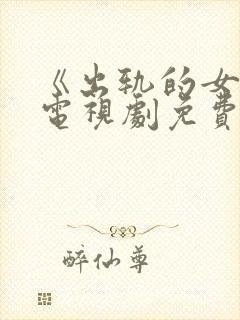 《出轨的女
電視劇免費
醉仙尊